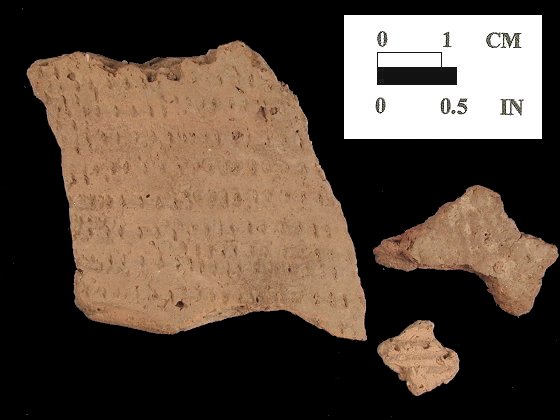 0 1 CM
0 0.5 IN